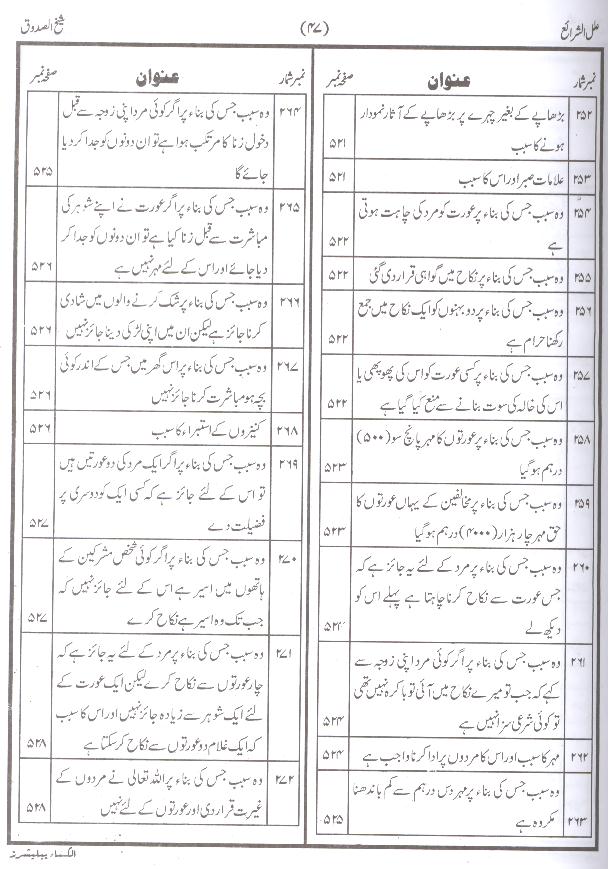 علل الشرائع
(۴۷)
شیخ الصدوقؒ
نمبر شمار
عنوان
صفحہ نمبر
۲۵۲
بڑھاپے کے بغیر چہرے پر بڑھاپے کے آثار نمودار
ہونے کا سبب
۵۲۱
۲۵۳
علامات صبر اور اس کا سبب
۵۲۱
۲۵۴
وہ سبب جس کی بناء پر عورت کو مرد کی چاہت ہوتی
ہے
۵۲۲
۲۵۵
وہ سبب جس کی بناء پر نکاح میں گواہی قرار دی گئی
۵۲۲
۲۵۶
وہ سبب جس کی بناء پر دو بہنوں کو ایک نکاح میں جمع
رکھنا حرام ہے
۵۲۲
۲۵۷
وہ سبب جس کی بناء پر کسی عورت کو اس کی پھوپھی یا
اس کی خالہ کی سوت بنانے سے منع کیا گیا ہے
۵۲۲
۲۵۸
وہ سبب جس کی بناء پر عورتوں کا مہر پانچ سو (۵۰۰)
درہم ہو گیا
۵۲۳
۲۵۹
وہ سبب جس کی بناء پر مخالفین کے یہاں عورتوں کا
حق مہر چار ہزار (۴۰۰۰) درہم ہو گیا
۵۲۳
۲۶۰
وہ سبب جس کی بناء پر مرد کے لئے یہ جائز ہے کہ
جس عورت سے نکاح کرنا چاہتا ہے پہلے اس کو
دیکھ لے
۵۲۴
۲۶۱
وہ سبب جس کی بناء پر اگر کوئی مرد اپنی زوجہ سے
کہے کہ جب تو میرے نکاح میں آئی تو باکرہ نہیں تھی
تو کوئی شرعی سزا نہیں ہے
۵۲۴
۲۶۲
مہر کا سبب اور اس کا مردوں پر ادا کرنا واجب ہے
۵۲۴
۲۶۳
وہ سبب جس کی بناء پر مہر دس درہم سے کم باندھنا
مکروہ ہے
۵۲۵
نمبر شمار
عنوان
صفحہ نمبر
۲۶۴
وہ سبب جس کی بناء پر اگر کوئی مرد اپنی زوجہ سے قبل
دخول زنا کا مرتکب ہوا ہے تو ان دونوں کو جدا کر دیا
جائے گا
۵۲۵
۲۶۵
وہ سبب جس کی بناء پر اگر عورت نے اپنے شوہر کی
مباشرت سے قبل زنا کیا ہے تو ان دونوں کو جدا کر
دیا جائے اور اس کے لئے مہر نہیں ہے
۵۲۶
۲۶۶
وہ سبب جس کی بناء پر شک کرنے والوں میں شادی
کرنا جائز ہے لیکن ان میں اپنی لڑکی دینا جائز نہیں
۵۲۶
۲۶۷
وہ سبب جس کی بناء پر اس گھر میں جس کے اندر کوئی
بچہ ہو مباشرت کرنا جائز نہیں
۵۲۶
۲۶۸
کنیزوں کے استبراء کا سبب
۵۲۶
۲۶۹
وہ سبب جس کی بناء پر اگر ایک مرد کی دو عورتیں ہیں
تو اس کے لئے جائز ہے کہ کسی ایک کو دوسری پر
فضیلت دے
۵۲۷
۲۷۰
وہ سبب جس کی بناء پر اگر کوئی شخص مشرکین کے
ہاتھوں میں اسیر ہے اس کے لئے جائز نہیں کہ
جب تک وہ اسیر ہے نکاح کرے
۵۲۷
۲۷۱
وہ سبب جس کی بناء پر مرد کے لئے یہ جائز ہے کہ
چار عورتوں سے نکاح کرے لیکن ایک عورت کے
لئے ایک شوہر سے زیادہ جائز نہیں اور اس کا سبب
کہ ایک غلام دو عورتوں سے نکاح کر سکتا ہے
۵۲۸
۲۷۲
وہ سبب جس کی بناء پر اللہ تعالی نے مردوں کے
غیرت قرار دی اور عورتوں کے لئے نہیں
۵۲۸
الکساء پبلیشرز